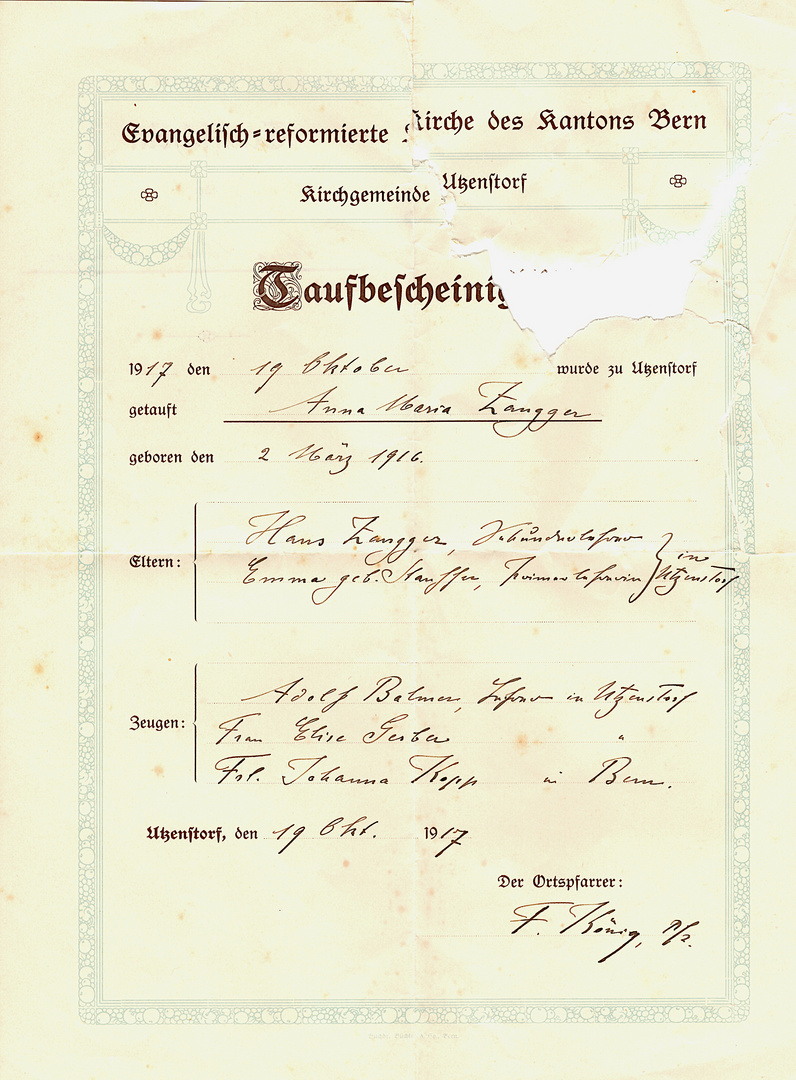 Evangelisch-reformierte Kirche des Kantons Bern
Kirchgemeinde Utzenstorf
Taufbescheinig
1917 den 19 Oktober wurde zu Utzenstorf
getauft Anna Maria Zangger
geboren den 2 März 1916.
Eltern: Hans Zangger, Sekundarlehrer
Emma geb. Stauffer, Primarlehrerin } in Utzenstorf
Zeugen: Adolf Balmer, Lehrer in Utzenstorf
Frau Elise Gerber "
Frl. Johanna Kopp in Bern.
Utzenstorf, den 19 Okt. 1917
Der Ortspfarrer:
F. König, Pfr.